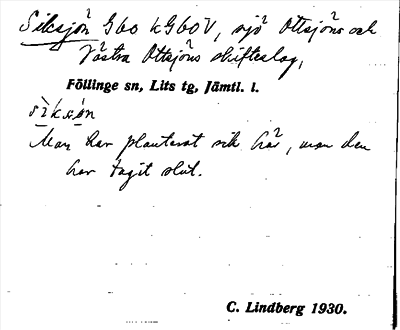 Siksjön G60 kG60V, sjö Ottsjöns och
Västra Ottsjöns skifteslag,
Föllinge sn, Lits tg, Jämtl. l.
Man har planterat sik här, men den
har tagit slut.
C. Lindberg 1930.